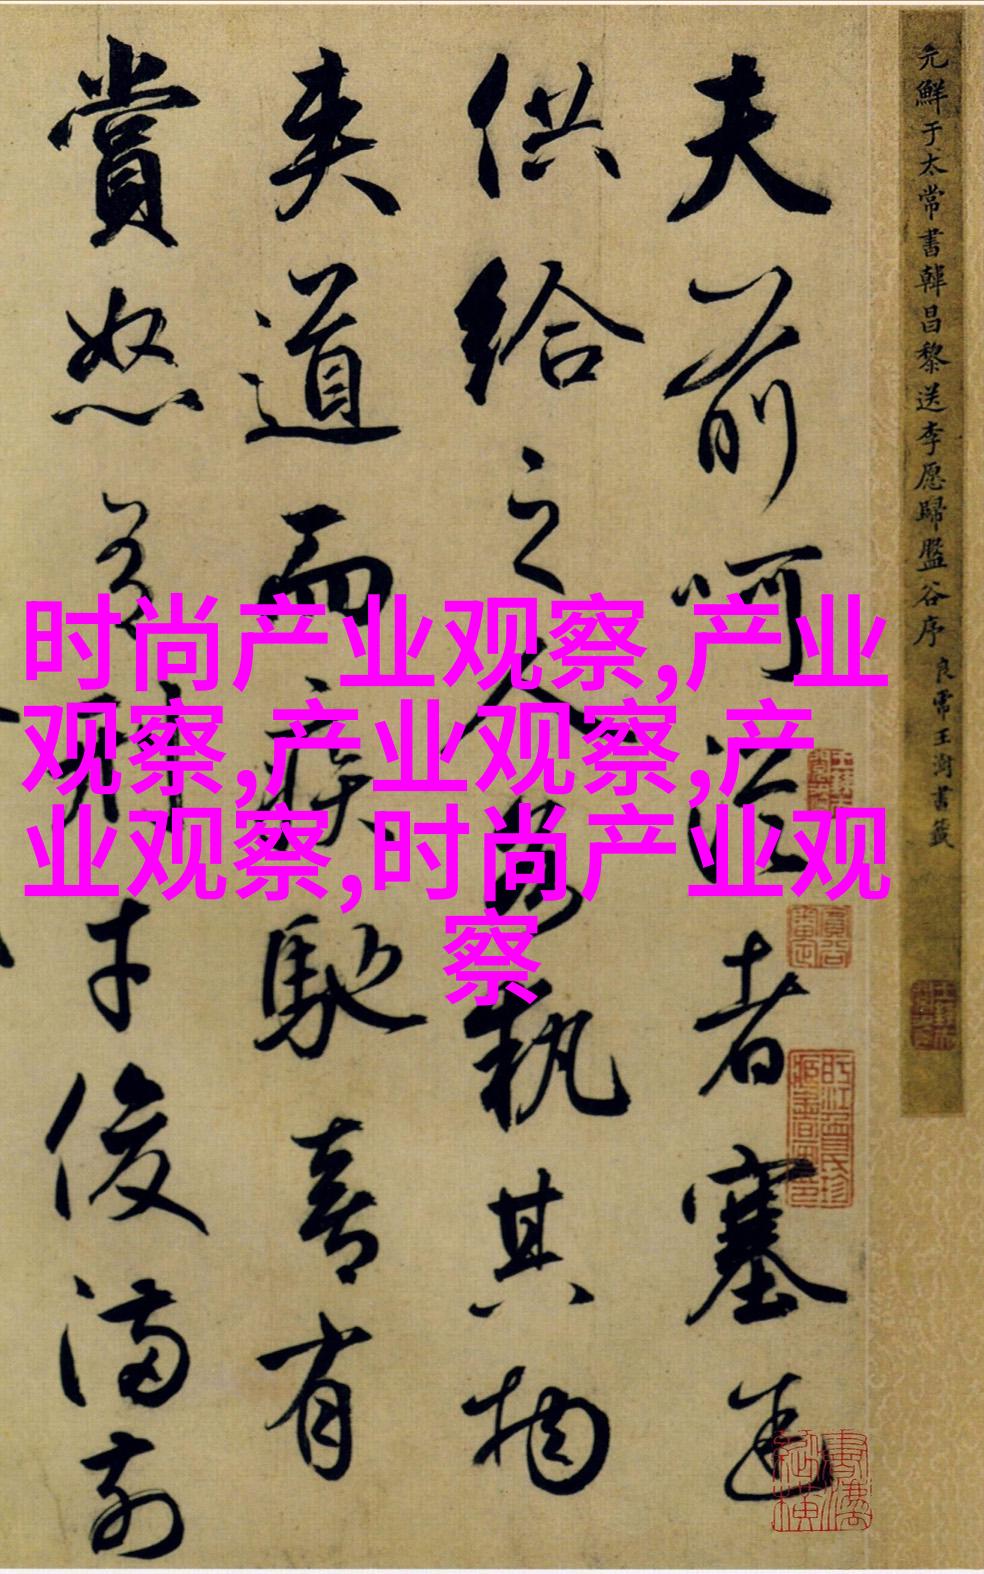 元鮮于太常書韓昌黎送李愿歸盤谷序
良常王澍書籤
夫前呵從者塞途
供給之人各執其物
夾道而疾馳喜有
賞怒有刑才俊滿前
时尚产业观察,产业
观察,产业观察,产
业观察,时尚产业观
察